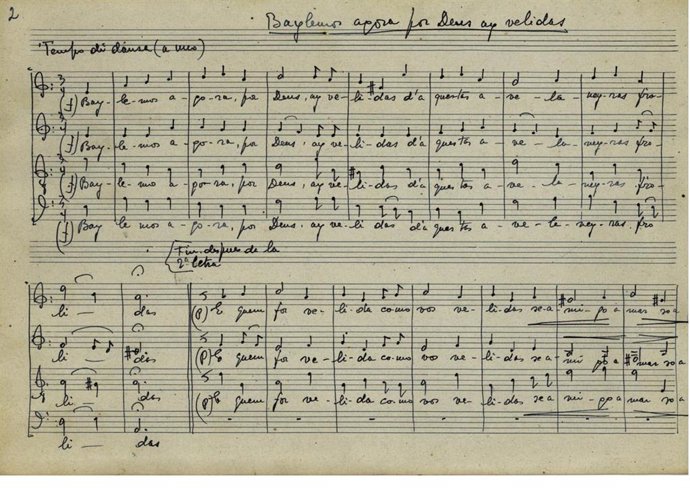 2
Baylemos agora por Deus ay velidas
Tempo di danza (a uno)
(f) Bay- le- mos a- go- ra, por Deus, ay ve- li- das d'a questas a- ve- la- neyras fro-
(f) Bay- le- mos a- go- ra, por Deus, ay ve- li- das d'a questas a- ve- la- neyras fro-
(f) Bay- le- mos a- go- ra, por Deus, ay ve- li- das d'a questas a- ve- la- neyras, fro-
(f) Bay le mos a- go- ra, por Deus, ay veli- das d'a questas a- ve- le- neyras, fro
Fin. despues de la
2ª letra
li- das (p) E quem for ve- li- da como vos ve- li- das se a- mi- go a- mar se a
li- das (p) E quem for ve- li- da co-mo vos ve- li- das se a- mi go a mar se a
li- das (p) E quem for ve- li- da co-mo vos ve- li- das se a- mi- go a mar se a
li- das